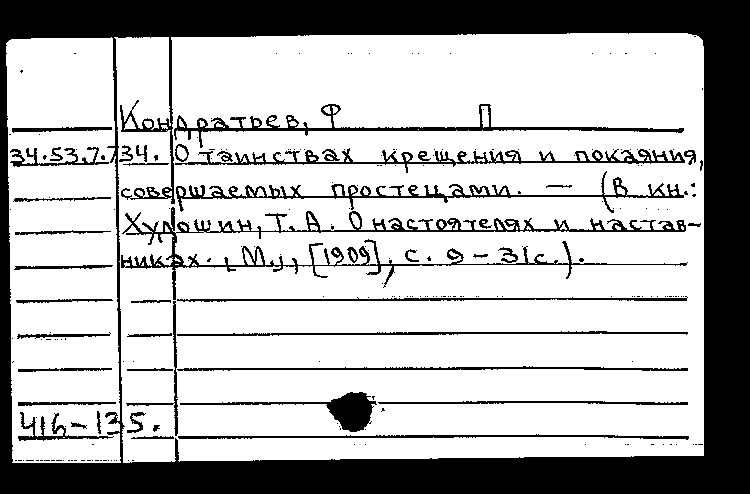 Кондратьев, Ф П
34.53.7.734. О таинствах крещения и покаяния,
совершаемых простецами. — (В кн.:
Худошин, Т. А. О настоятелях и настав-
никах. [М.], [1909], с. 9 – 31с.).
416-135.